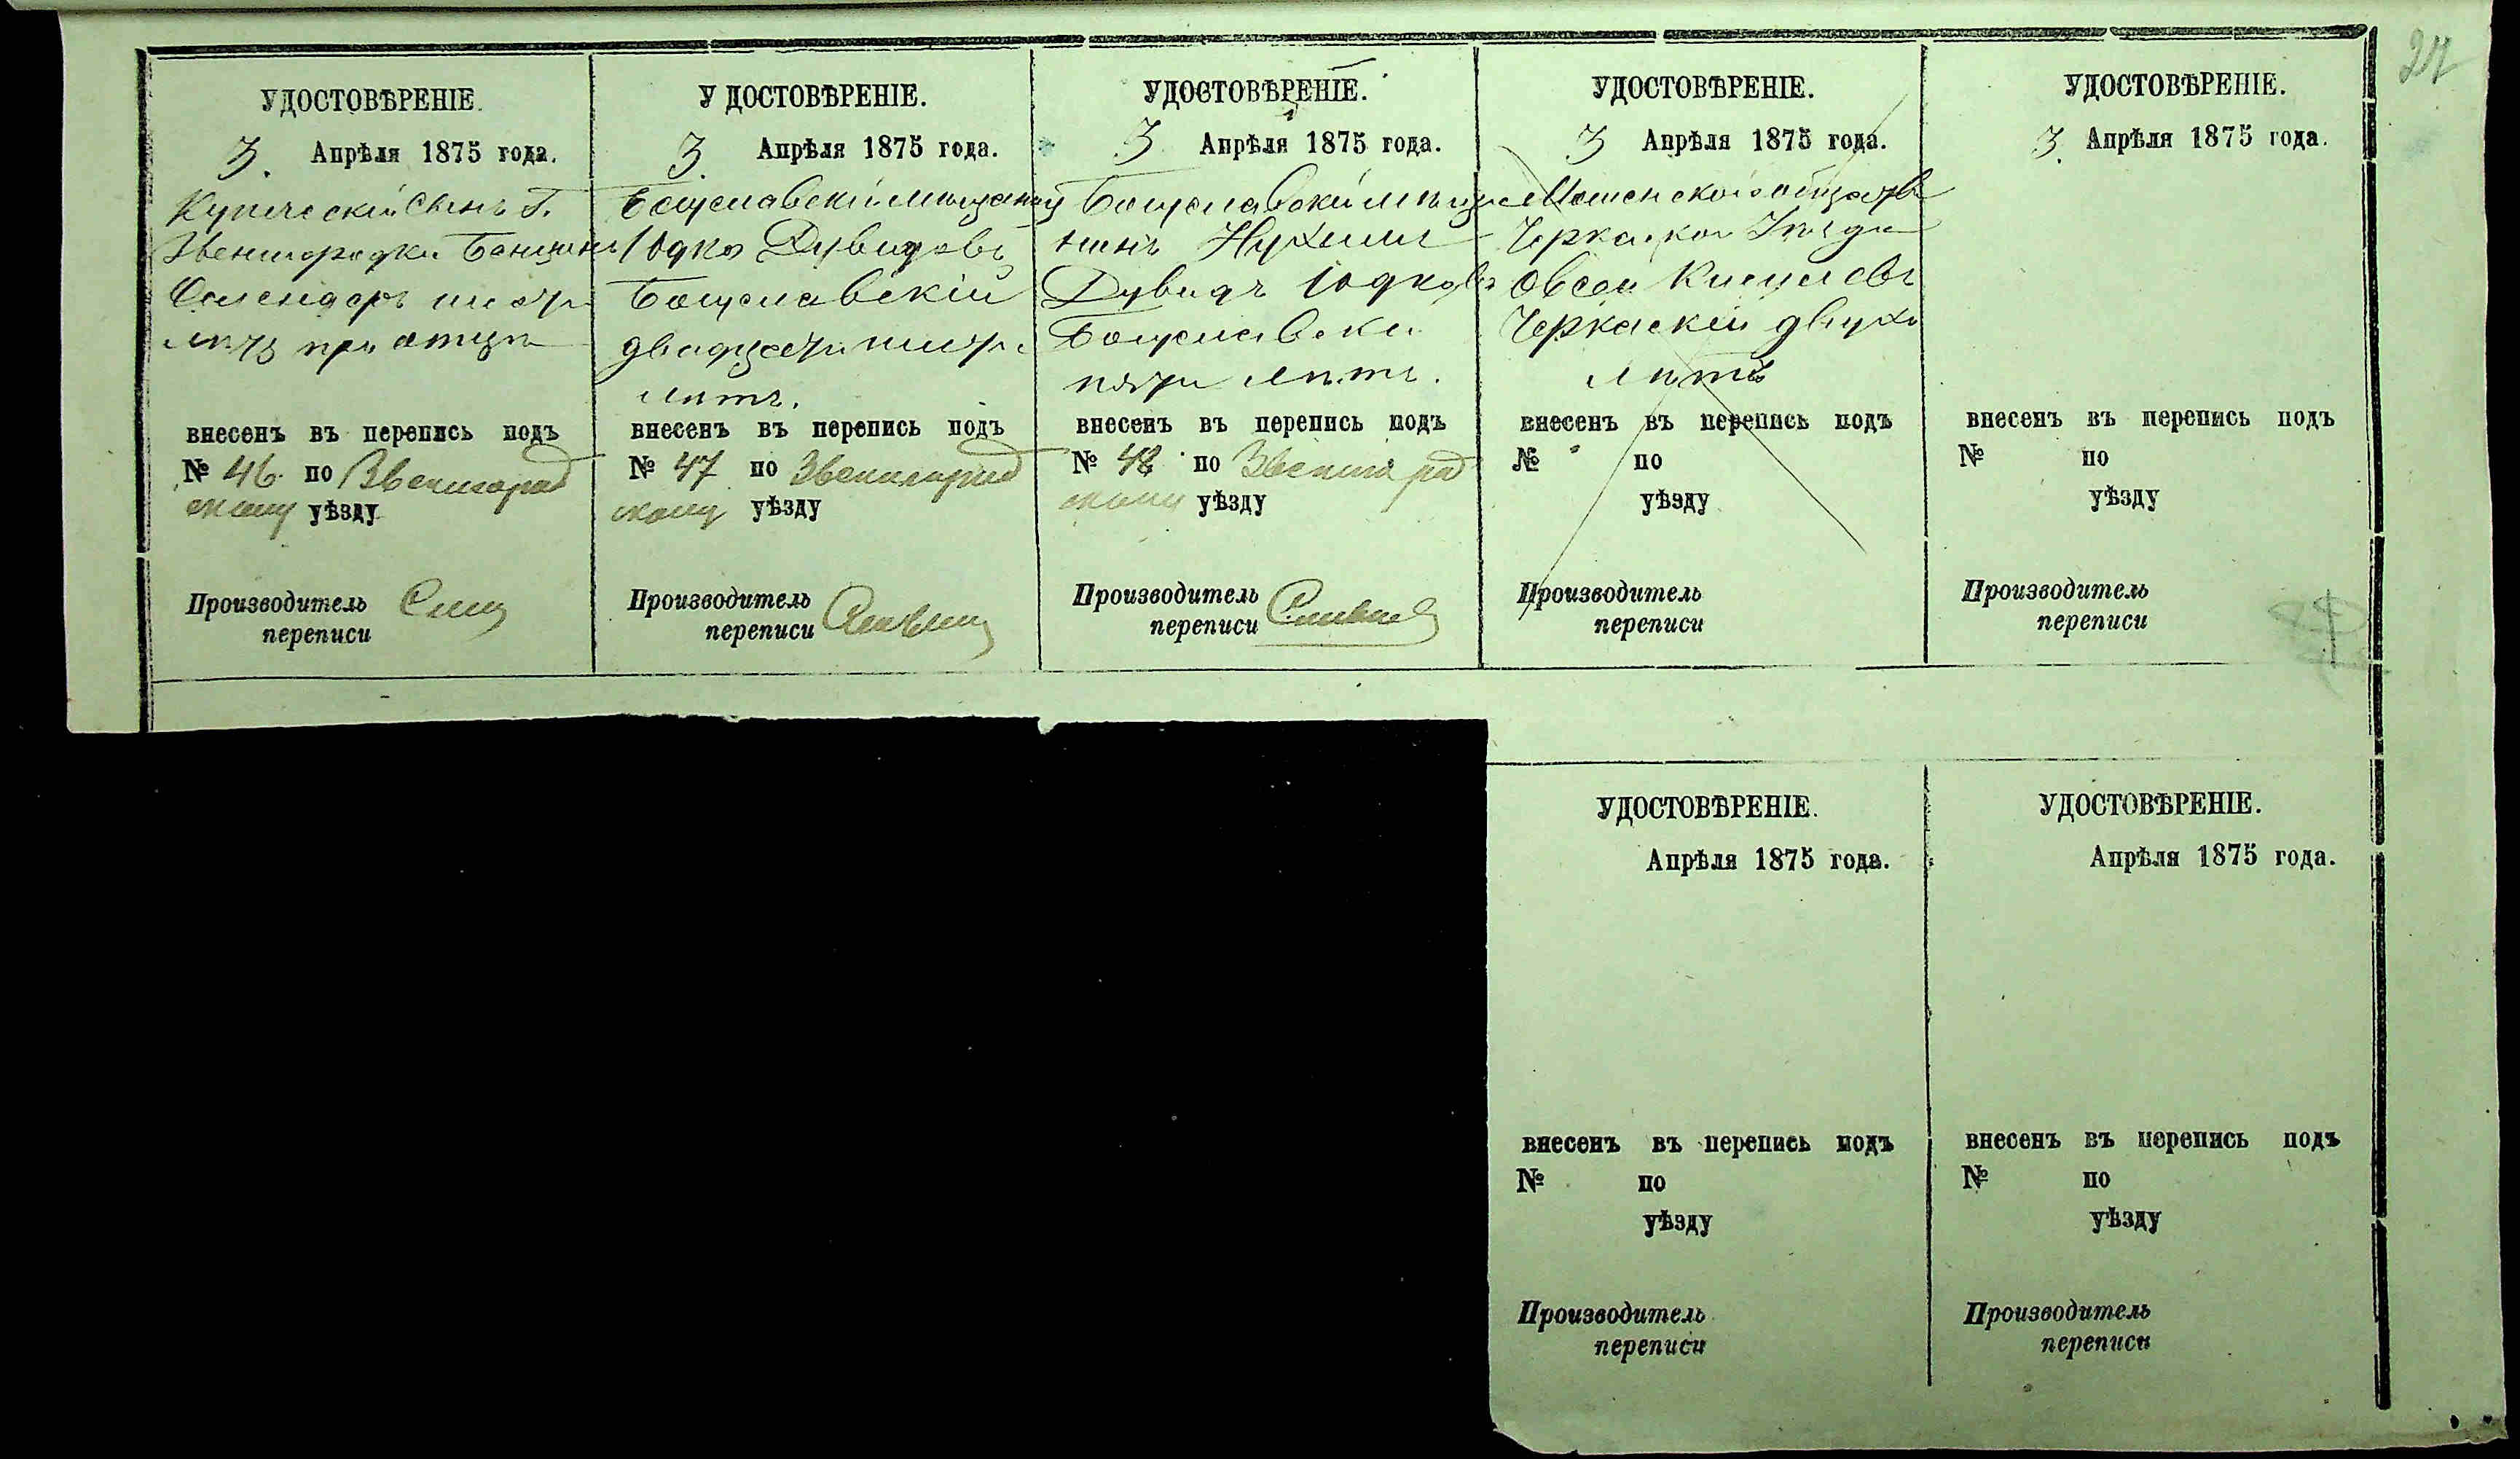 УДОСТОВѢРЕНІЕ.
3. Апрѣля 1875 года.
Купеческій Сынъ Г.
Звенигородки
при отцѣ
внесенъ въ перепись подъ
№ 46. по Звенигород
скому уѣзду
Производитель
переписи
У ДОСТОВѢРЕНІЕ.
3. Апрѣля 1875 года.
Богуславскій мещанинъ
Юдко Дувидовъ
Богуславскій
двадцати
лѣтъ.
внесенъ въ перепись подъ
№ 47 по Звенигород
скому уѣзду
Производитель
переписи
УДОСТОВѢРЕНІЕ.
3 Апрѣля 1875 года.
Богуславскій мѣща
нинъ Нухим
Дувидъ Юдковъ
Богуславски
пяти лѣтъ.
внесенъ въ перепись подъ
№ 48 по Звенигород
скому уѣзду
Производитель
переписи
УДОСТОВѢРЕНІЕ.
3 Апрѣля 1875 года.
Мошенского общества
Черкаског Уѣзда
Овсей
Черкаскій двухъ
лѣтъ
внесенъ въ перепись подъ
№ по
уѣзду
Производитель
переписи
УДОСТОВѢРЕНІЕ.
3. Апрѣля 1875 года.
внесенъ въ перепись подъ
№ по
уѣзду
Производитель
переписи
УДОСТОВѢРЕНІЕ.
Апрѣля 1875 года.
внесенъ въ перепись подъ
№ по
уѣзду
Производитель
переписи
УДОСТОВѢРЕНІЕ.
Апрѣля 1875 года.
внесенъ въ перепись подъ
№ по
уѣзду
Производитель
переписи